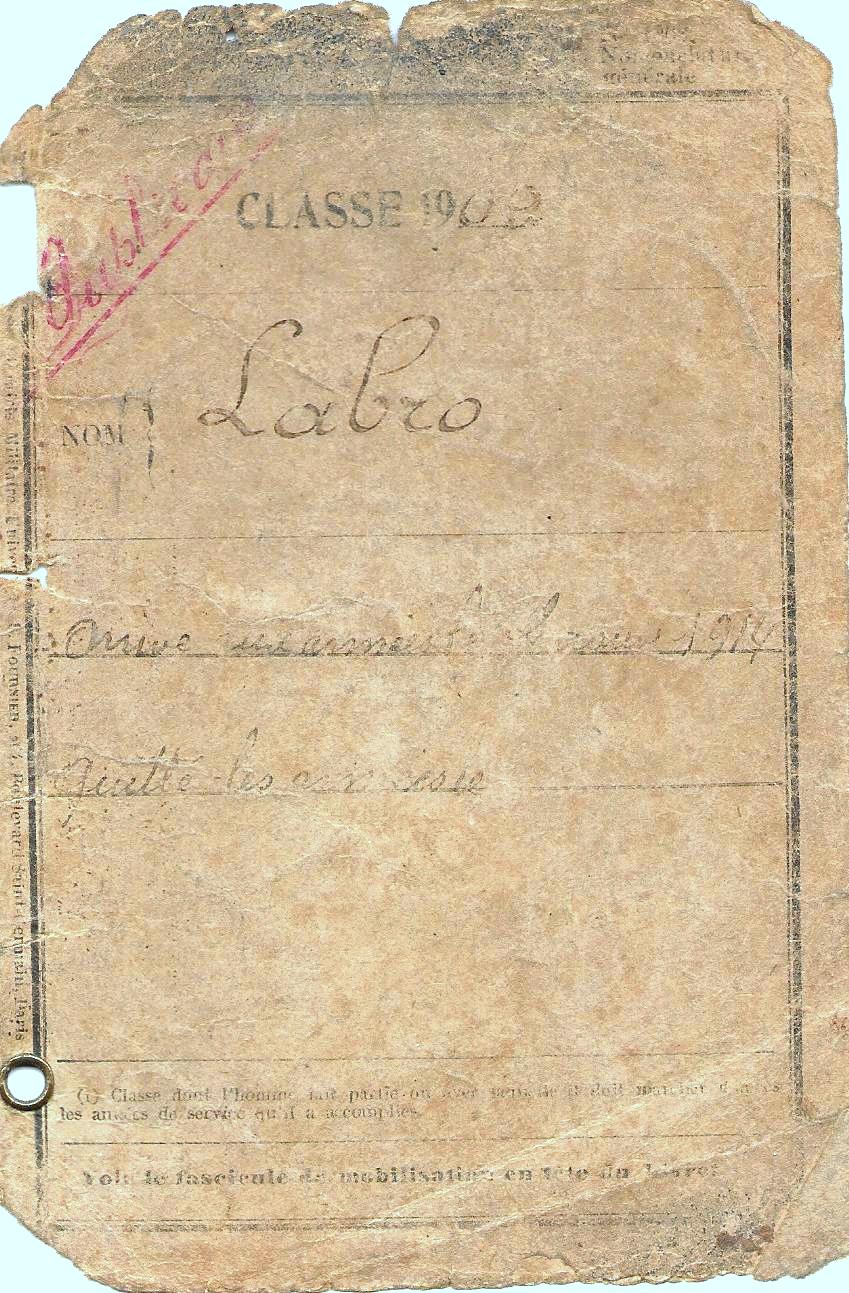 Nomenclature
générale
CLASSE 1902
NOM
Labro
Arrivé aux armées le 1914
Quitté les armées le
(1) Classe dont l'homme fait partie ou avec laquelle il doit marcher d'après
les années de service qu'il a accomplies.
Voir le fascicule de mobilisation en tête du livret
Militaire FOURNIER, Boulevard Saint-Germain, Paris